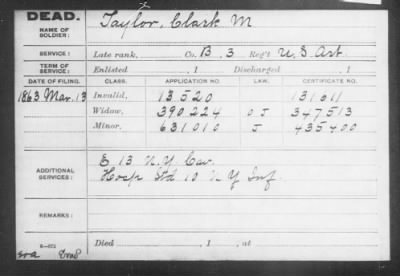 DEAD.
NAME OF SOLDIER: Taylor, Clark M
SERVICE: Late rank, Co. B. 3 Reg't U.S. Art.
TERM OF SERVICE: Enlisted , 1 Discharged , 1
DATE OF FILING. CLASS. APPLICATION NO. LAW. CERTIFICATE NO.
1863 Mar. 13 Invalid, 13520 131611
Widow, 390224 O J 347513
Minor, 631010 J 435400
ADDITIONAL SERVICES: E 13 N.Y. Cav.
Hosp Std 10 N Y Inf.
REMARKS:
Died , 1 , at